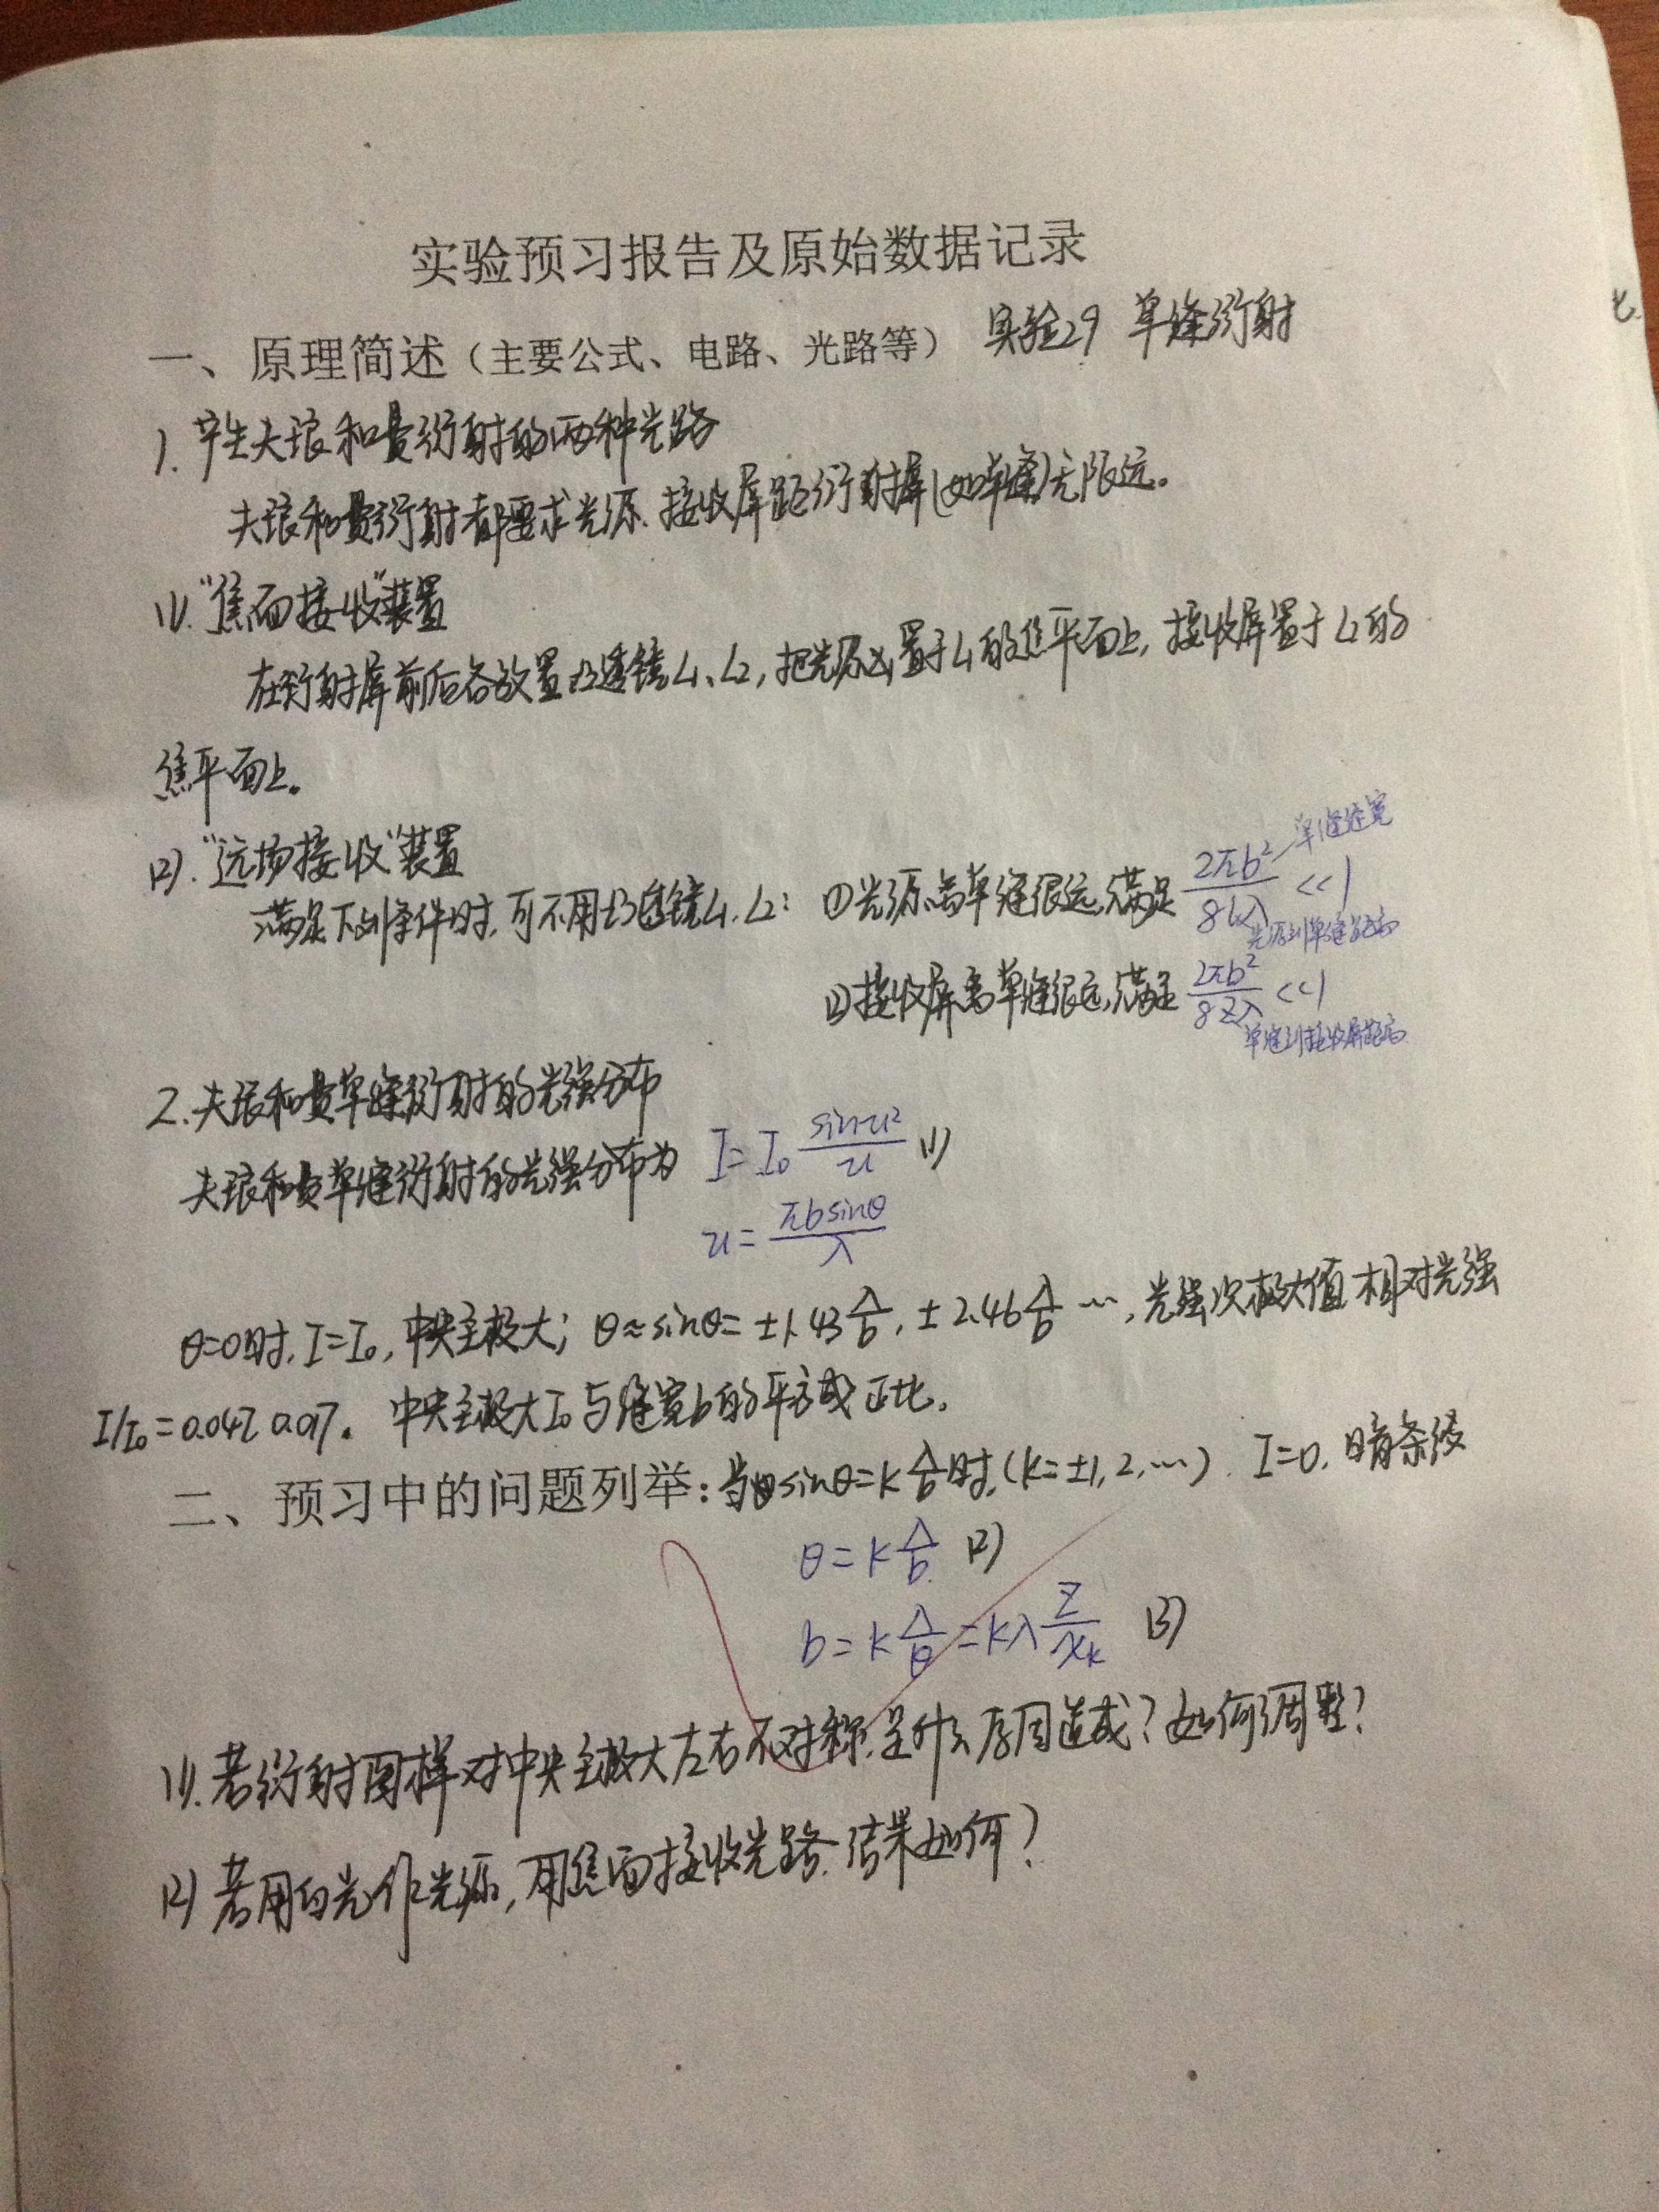 实验预习报告及原始数据记录
一、原理简述（主要公式、电路、光路等） 实验29 单缝衍射
1. 产生夫琅和费衍射的两种光路
夫琅和费衍射都要求光源、接收屏距衍射屏(如单缝)无限远。
(1). "焦面接收"装置
在衍射屏前后各放置凸透镜L1、L2, 把光源置于L1的焦平面上, 接收屏置于L2的
焦平面上。
(2). "远场接收"装置
满足下列条件时, 可不用凸透镜L1、L2: ①光源离单缝很远, 满足 2πb²/8lλ <<1
单缝缝宽
光源到单缝的距离
②接收屏离单缝很远, 满足 2πb²/8zλ <<1
单缝到接收屏距离
2. 夫琅和费单缝衍射的光强分布
夫琅和费单缝衍射的光强分布为 I=I₀ sinu²/u (1)
u= πbsinθ/λ
θ=0时, I=I₀, 中央主极大; θ≈sinθ=±1.43 λ/b, ±2.46 λ/b …, 光强次极大值 相对光强
I/I₀=0.047, 0.017。 中央主极大I₀与缝宽b的平方成正比。
二、预习中的问题列举: 当sinθ=k λ/b 时, (k=±1, 2, …). I=0, 暗条纹
θ=k λ/b (2)
b=k λ/θ =kλ z/xₖ (3)
(1). 若衍射图样对中央主极大左右不对称, 是什么原因造成? 如何调整?
(2) 若用白光作光源, 用焦面接收光路, 结果如何?